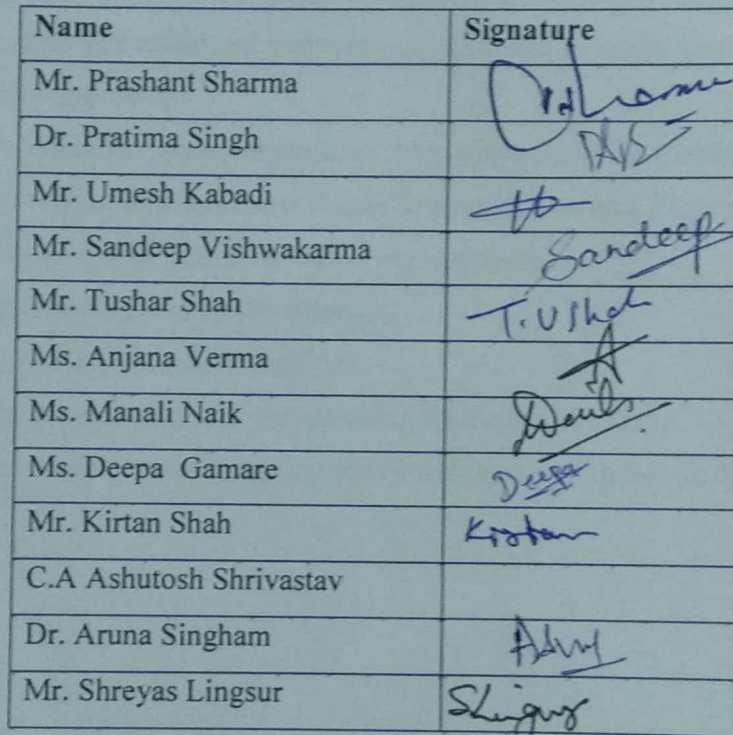 Name Signature
Mr. Prashant Sharma
Dr. Pratima Singh
Mr. Umesh Kabadi
Mr. Sandeep Vishwakarma Sandeep
Mr. Tushar Shah T.U Shah
Ms. Anjana Verma
Ms. Manali Naik
Ms. Deepa Gamare Deepa
Mr. Kirtan Shah Kirtan
C.A Ashutosh Shrivastav
Dr. Aruna Singham
Mr. Shreyas Lingsur